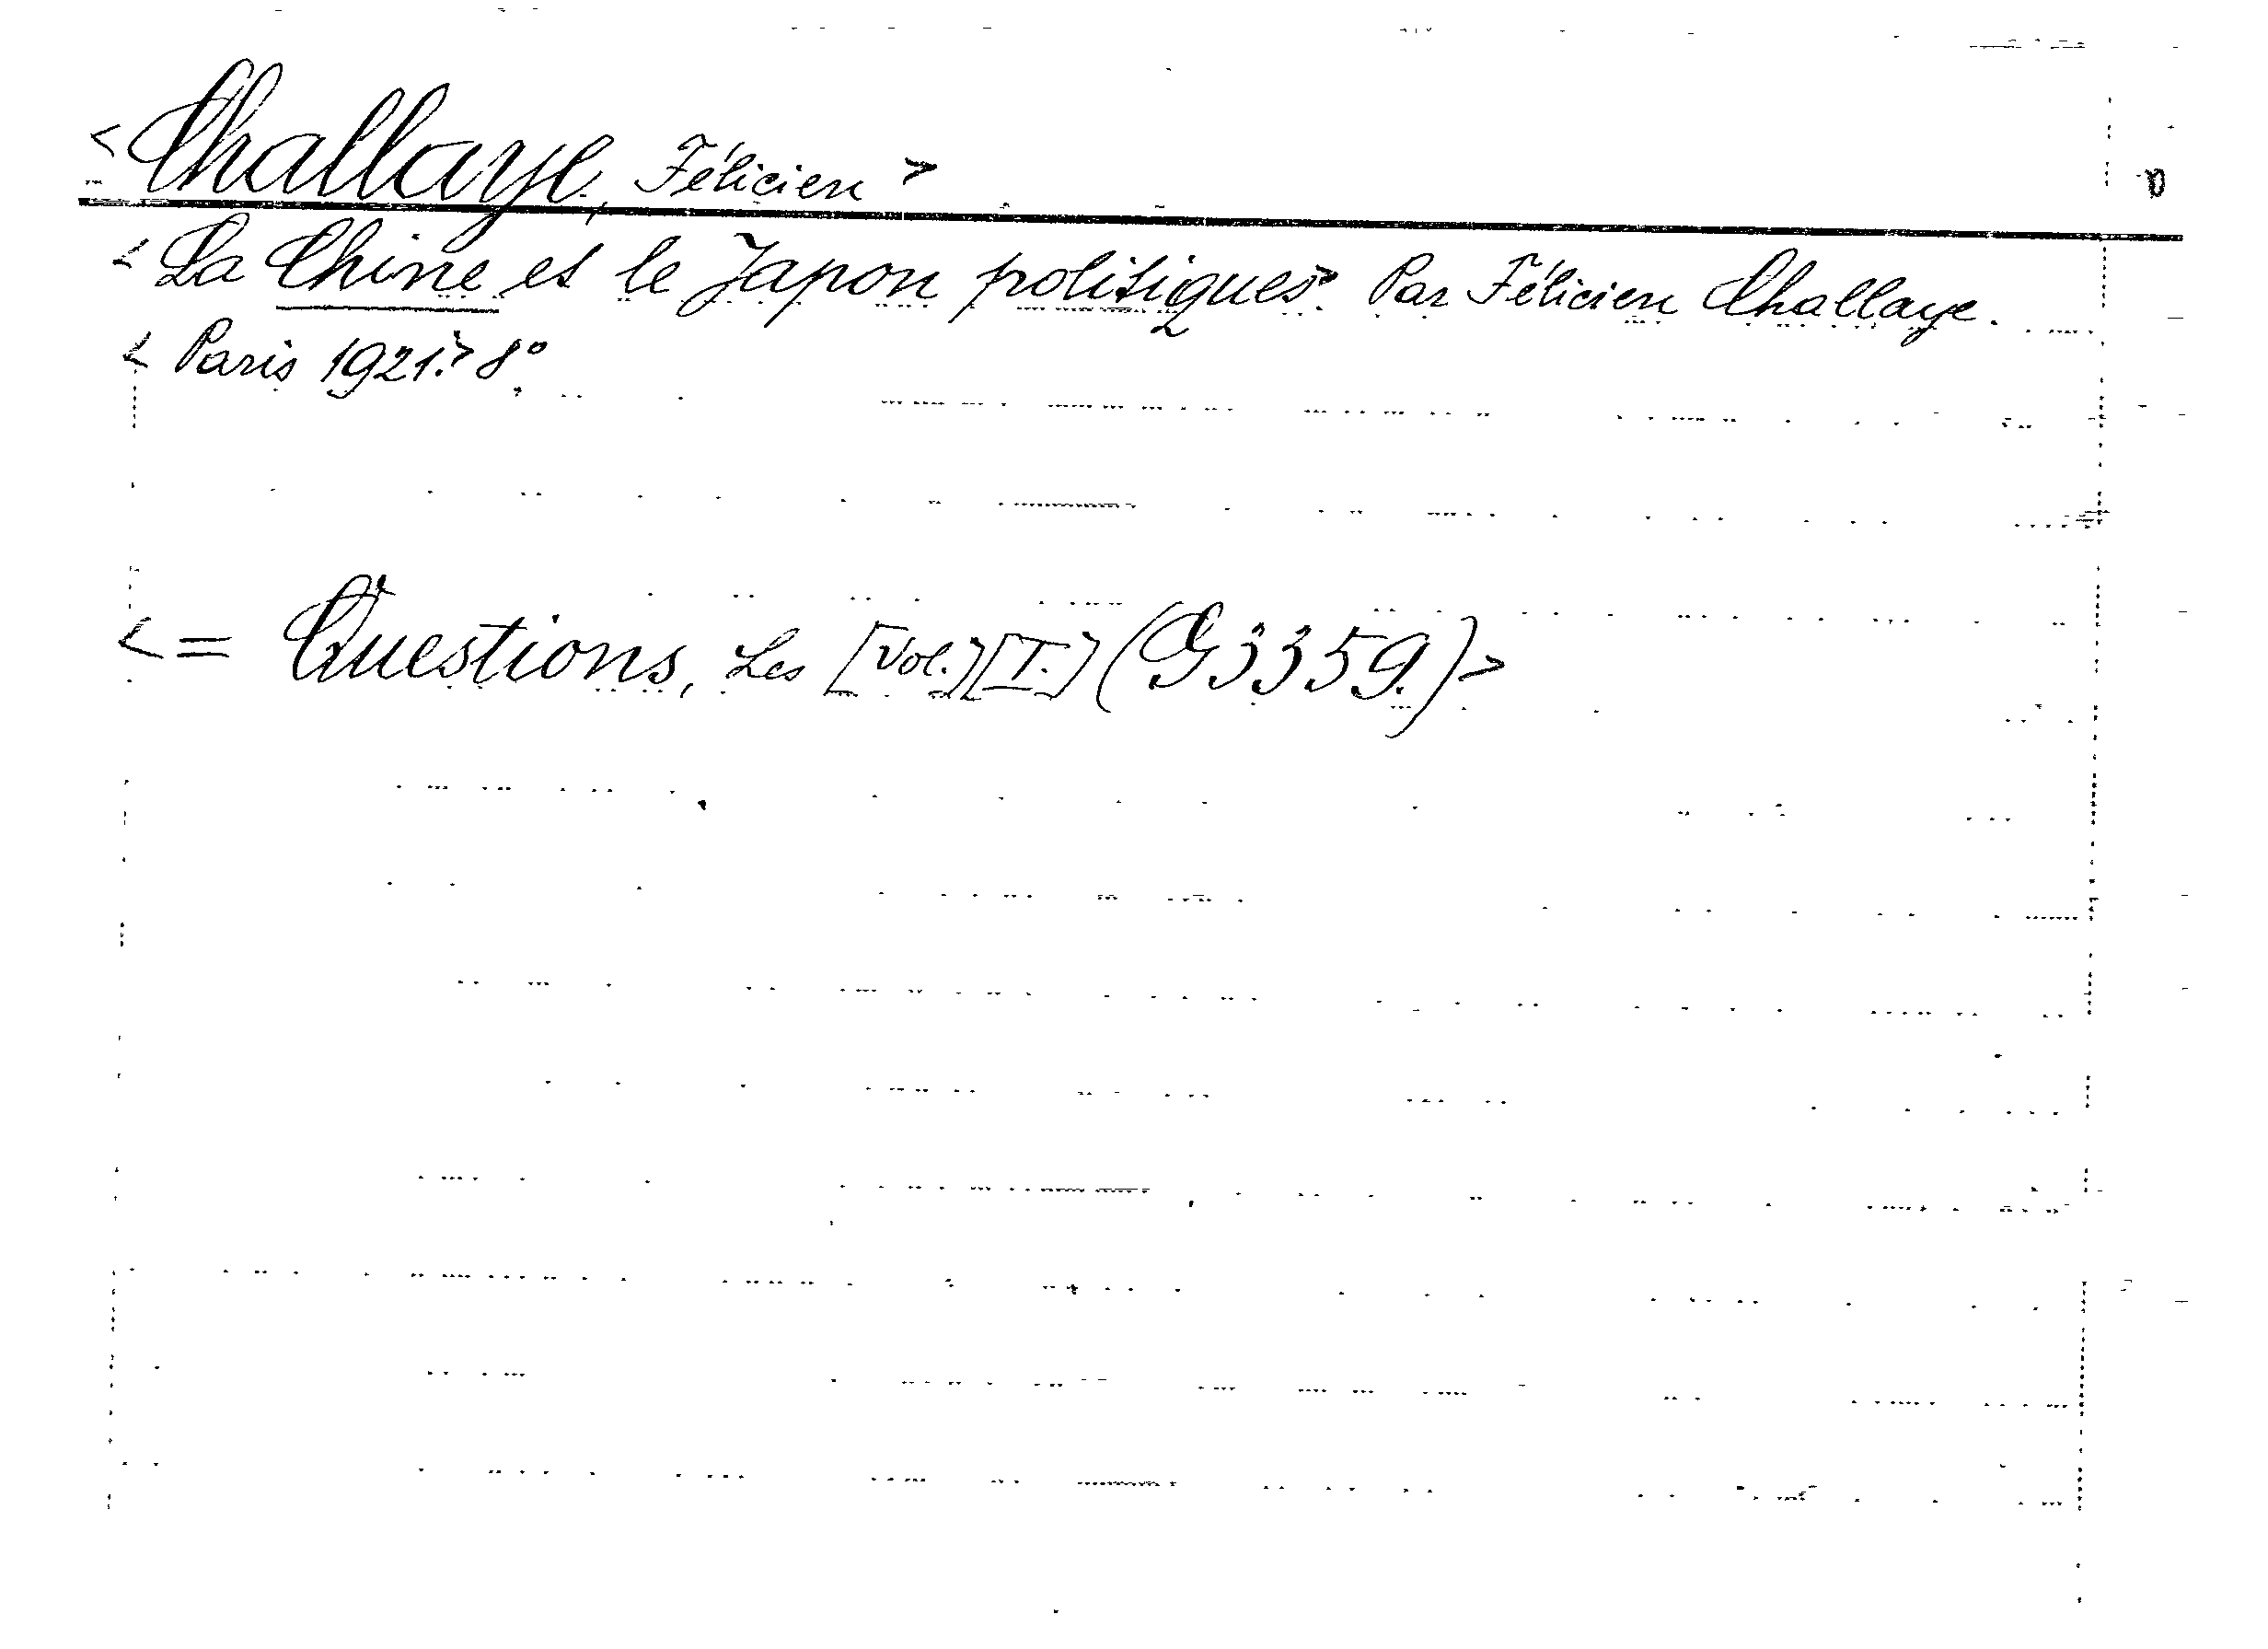 <Challaye, Félicien>
<La Chine et le Japon politiques> Par Félicien Challaye.
<Paris 1921.> 8°
<= Questions, Les [Vol.][I.] (G3359.)>